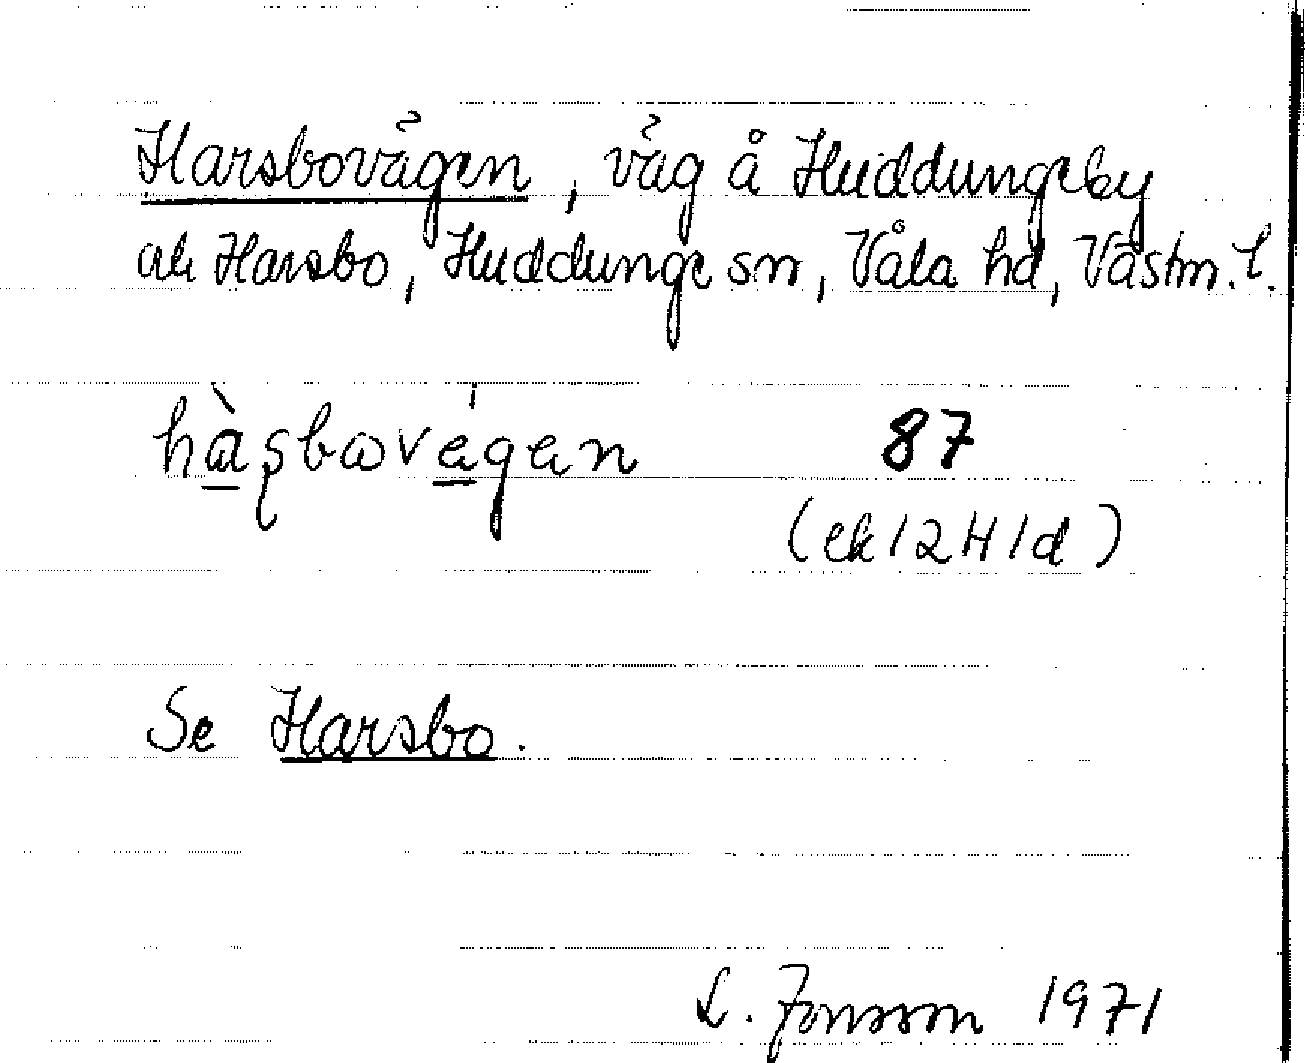 Harsbovägen, väg å Huddungeby
och Harsbo, Huddunge sn, Våla hd, Västm. l.
hàʂbovégen 87
(ek 12H1d)
Se Harsbo.
L. Jonsson 1971